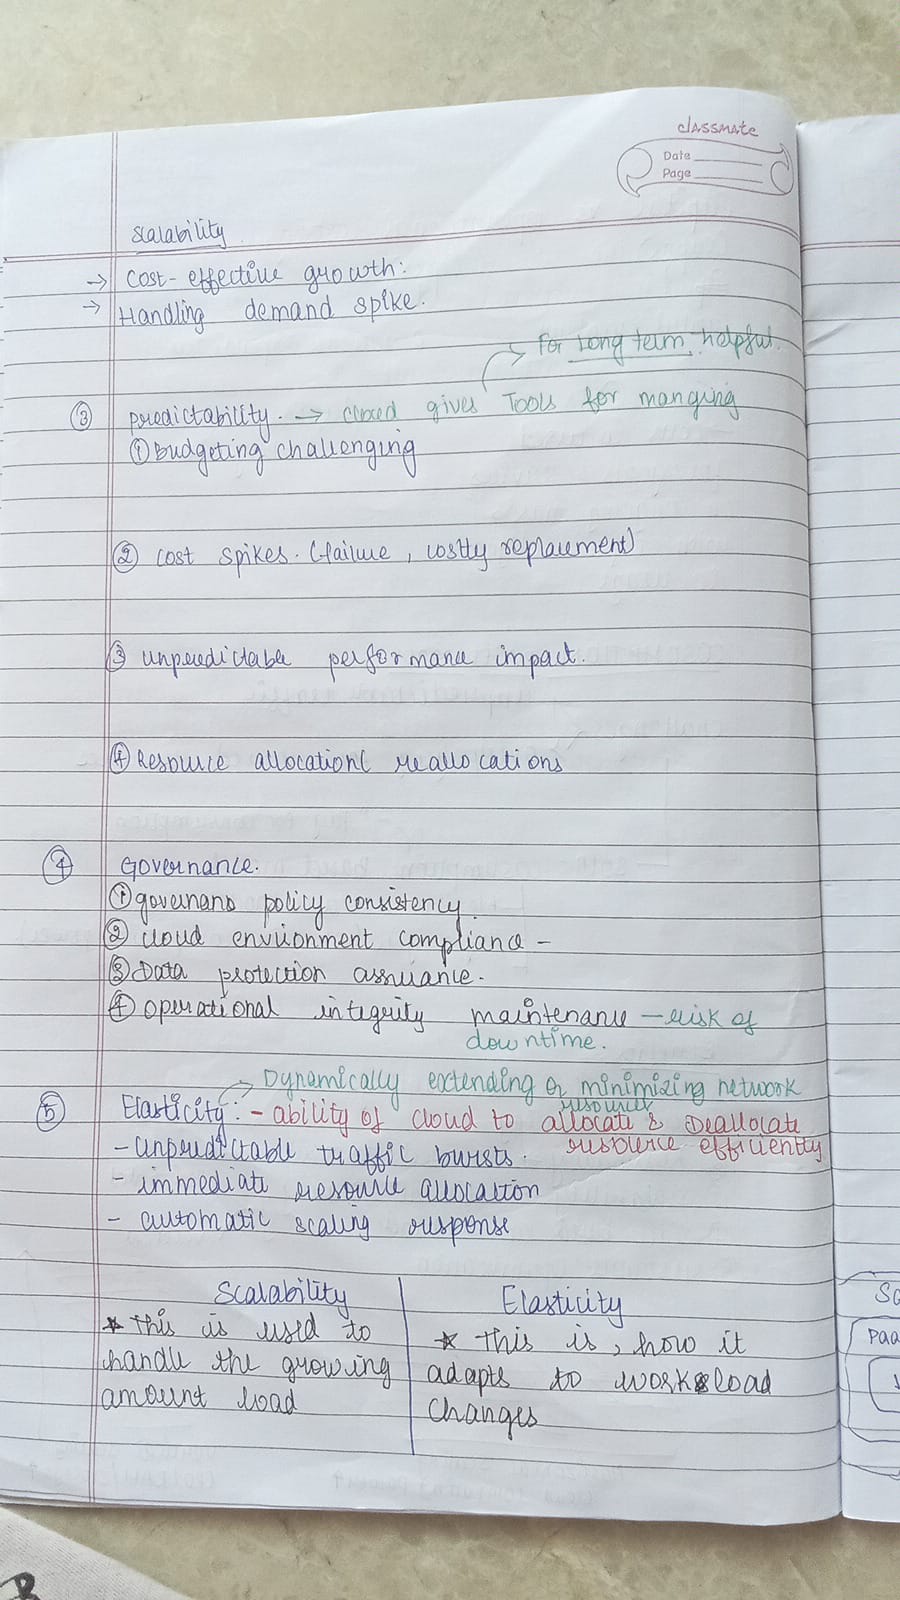 classmate
Date
Page
Scalability
→ Cost-effective growth:
→ Handling demand spike.
→ For Long term helpful.
③ predictability. → cloed gives Tools for manging
① Budgeting challenging
② cost spikes. (failure, costly replacement)
③ unpredictable performance impact.
④ Resource allocation( reallocations
④ Governance.
① governans policy consistency.
② cloud environment compliance -
③ Data protection assurance.
④ operational integrity maintenance - risk of
downtime.
→ Dynamically extending or minimizing network
resources
⑤ Elasticity: - ability of cloud to allocate & Deallocate
resource efficiently
- unpredictable traffic bursts.
- immediate resource allocation
- automatic scaling response
Scalability | Elasticity
* This is used to
handle the growing
amount load
* This is, how it
adapts to workload
changes
Sc
Paa